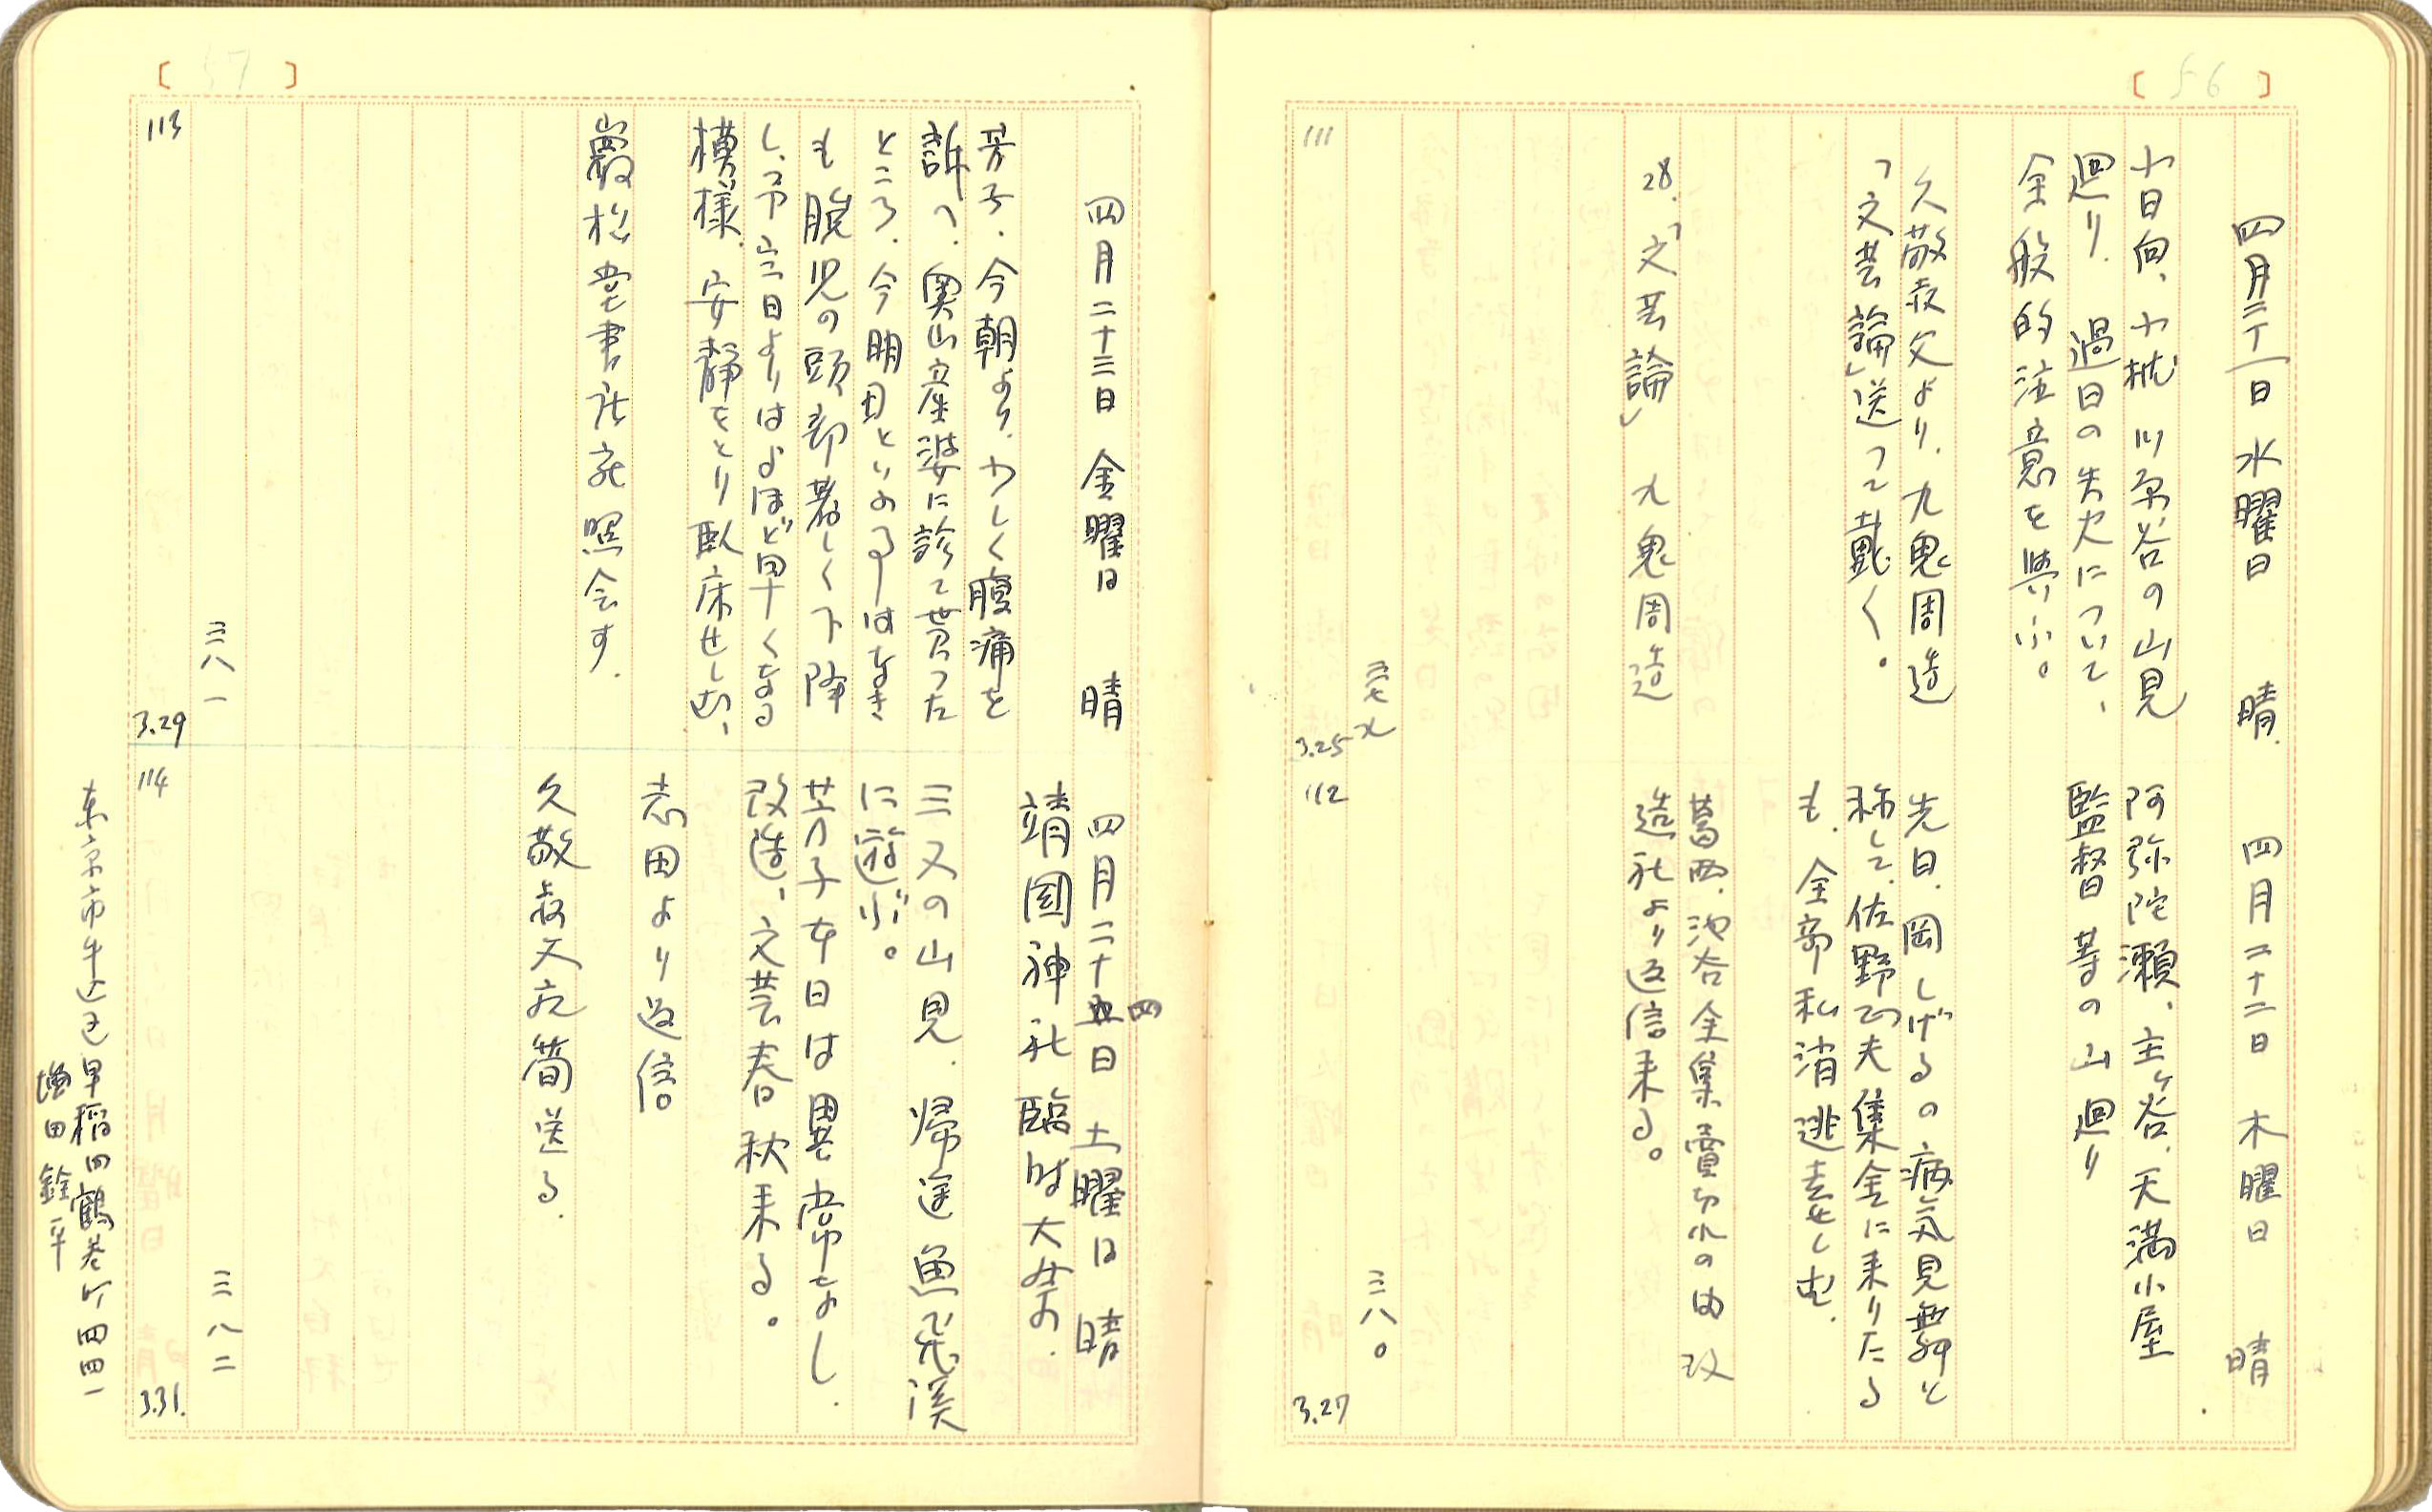 [ 56 ]
四月二十一日 水曜日 晴
小日向、小枕 川原谷の山見
廻り. 過日の失火について、
全般的注意を與ふ。
久敬叔父より. 九鬼周造
「文芸論」送って戴く。
28.「文芸論」 九鬼周造
三七九
111
3.25
四月二十二日 木曜日 晴
阿弥陀瀬、主ヶ谷. 天満小屋
監督 等の山廻り
先日. 岡しげるの病気見舞と
称して. 佐野正夫集金に来りたる
も. 全部私消逃走せし由.
葛西. 池谷全集賣切れの由 改
造社より返信来る。
三八〇
112
3.27
[ 57 ]
四月二十三日 金曜日 晴
芳子. 今朝より. 少しく腹痛を
訴へ. 奥山産婆に診て貰った
ところ. 今明日といふ事はなき
も脱児の頭部著しく下降
し、予定日よりはよほど早くなる
模様. 安静をとり臥床せしむ、
巖松堂書店宛照会す.
三八一
113
3.29
四月二十四日 土曜日 晴
靖國神社臨時大祭.
三又の山見. 帰途 魚飛溪
に遊ぶ。
芳子本日は異常なし.
改造、文芸春秋来る。
志田より返信
久敬叔父宛筍送る.
三八二
114
3.31.
東京市牛込区早稲田鶴巻町四四一
増田銓平